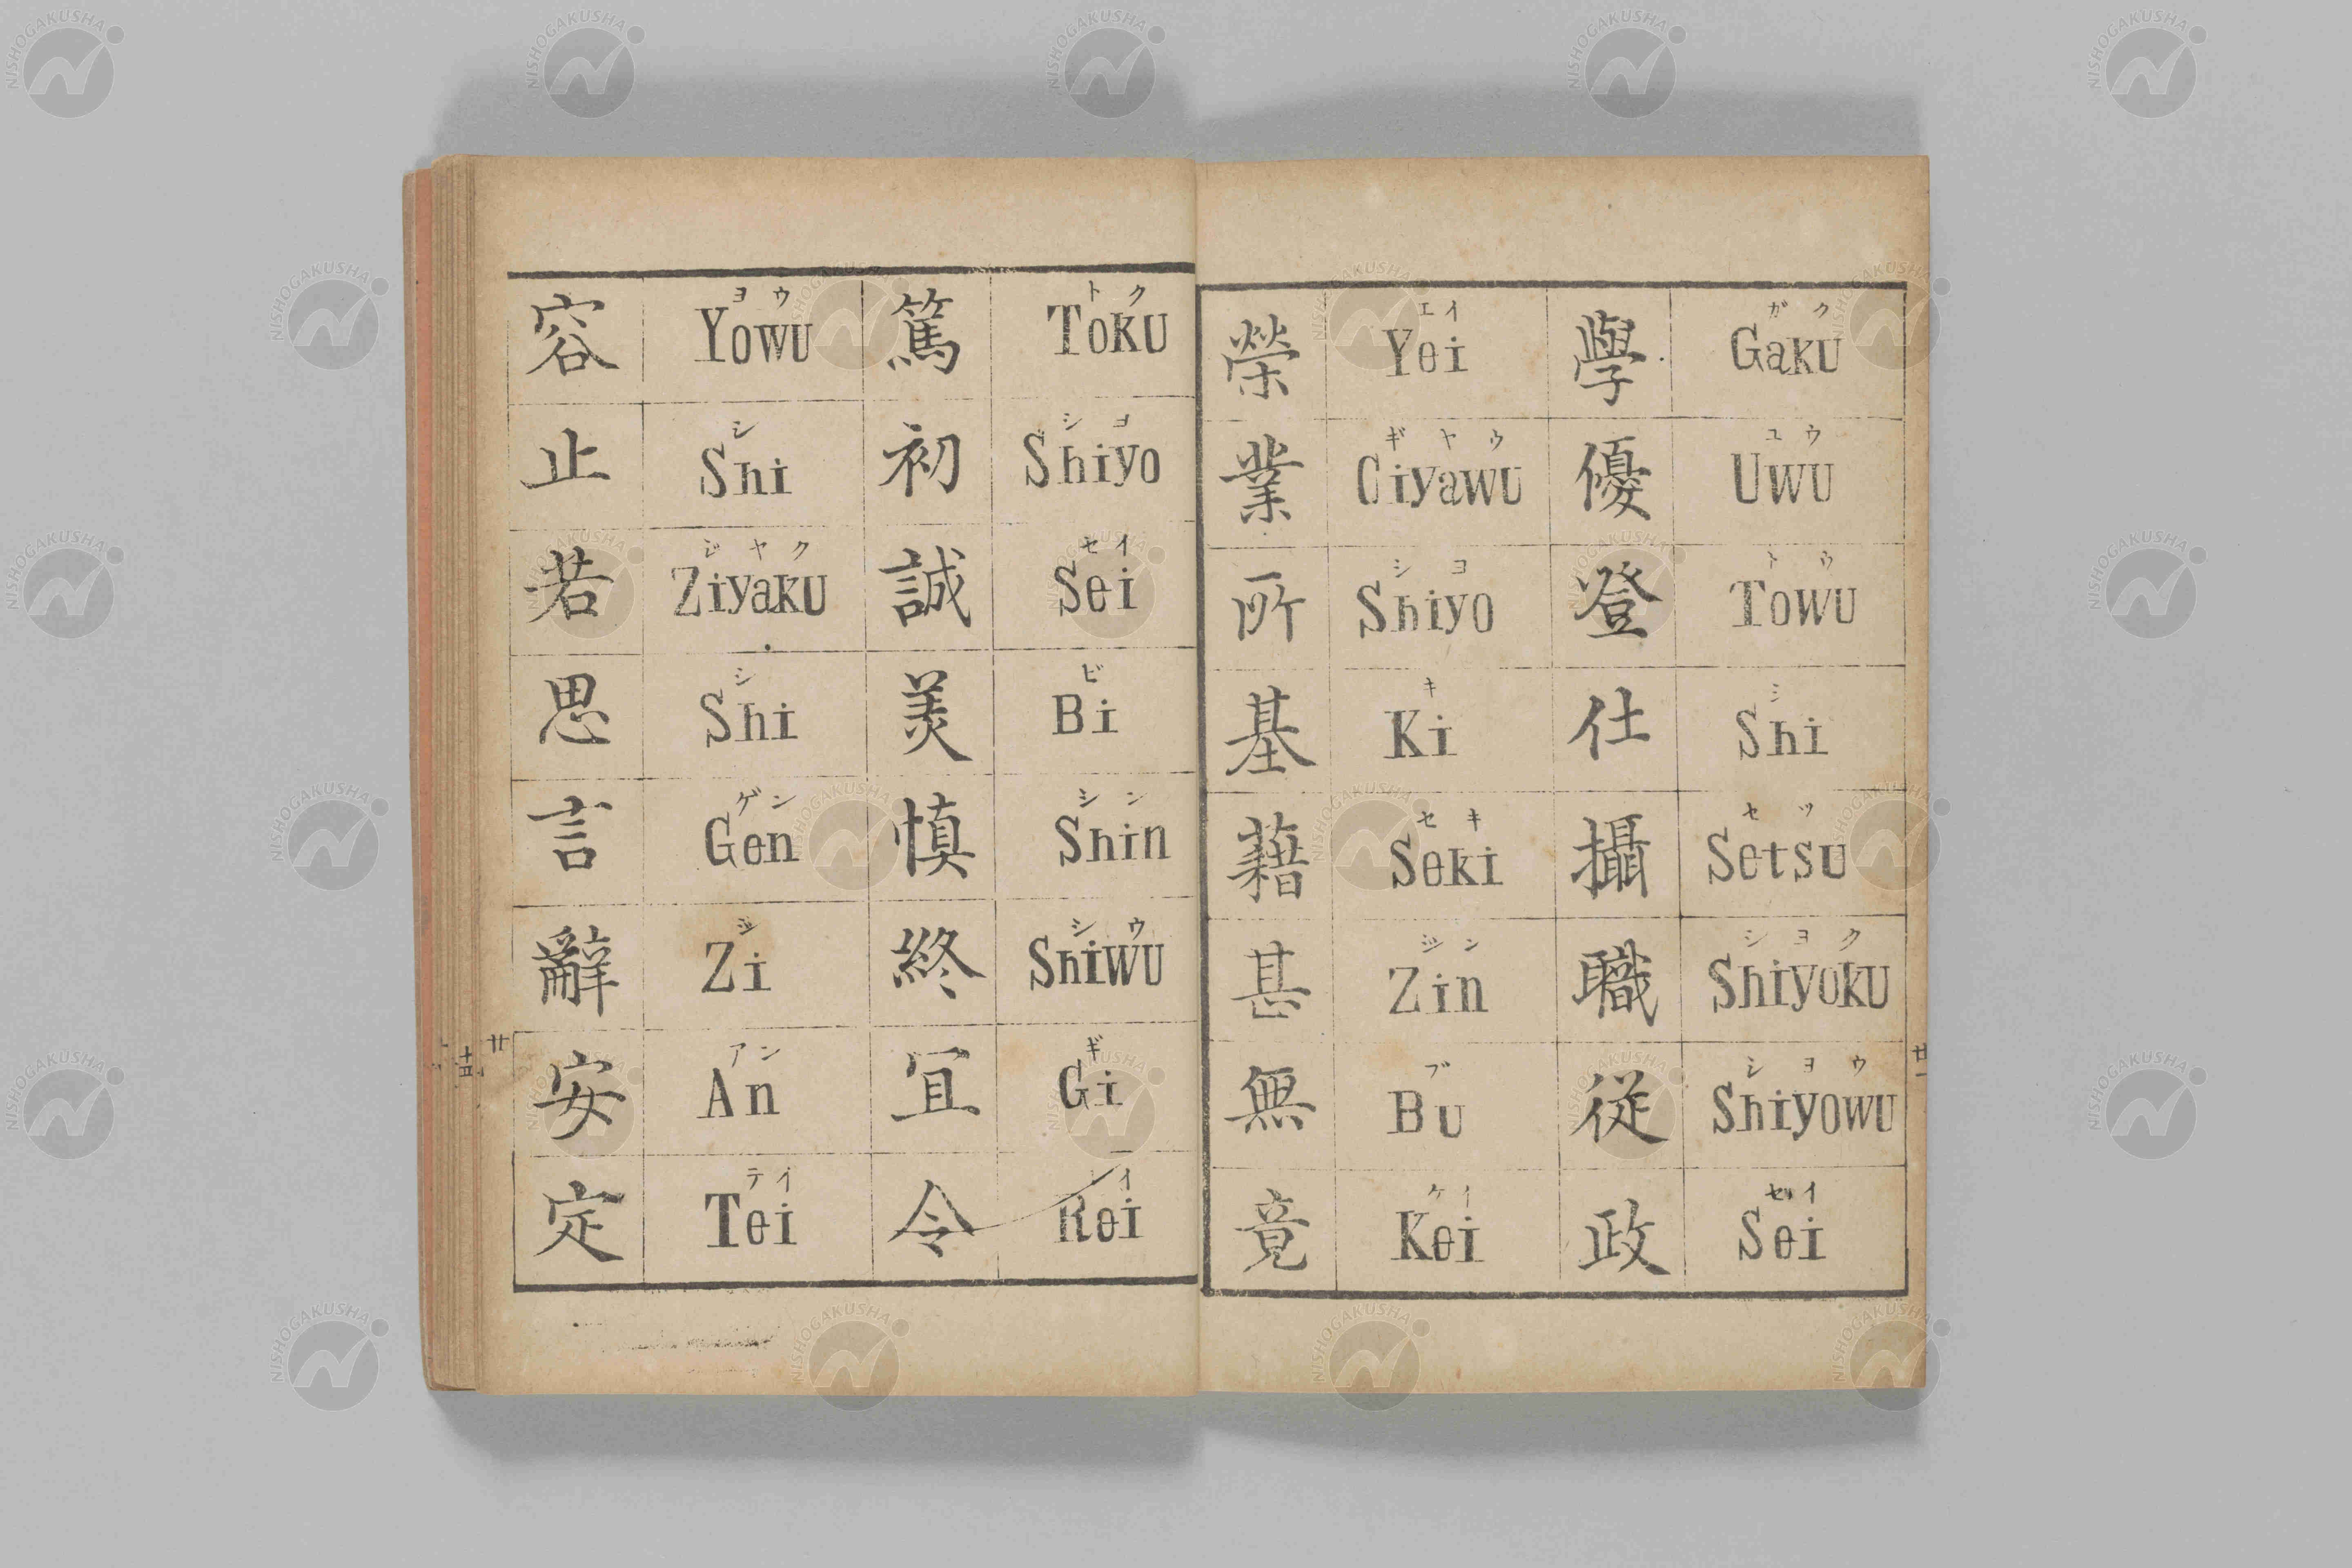 容 ヨウ Yowu
止 シ Shi
若 ジヤク Ziyaku
思 シ Shi
言 ゲン Gen
辭 ジ Zi
安 アン An
定 テイ Tei
篤 トク Toku
初 シヨ Shiyo
誠 セイ Sei
羙 ビ Bi
慎 シン Shin
終 シウ Shiwu
冝 ギ Gi
令 レイ Rei
廿
榮 エイ Yei
業 ギヤウ Giyawu
所 シヨ Shiyo
基 キ Ki
藉 セキ Seki
甚 ジン Zin
無 ブ Bu
竟 ケイ Kei
學 ガク Gaku
優 ユウ Uwu
登 トウ Towu
仕 シ Shi
攝 セツ Setsu
職 シヨク Shiyoku
從 シヨウ Shiyowu
政 セイ Sei
廿一
NISHOGAKUSHA